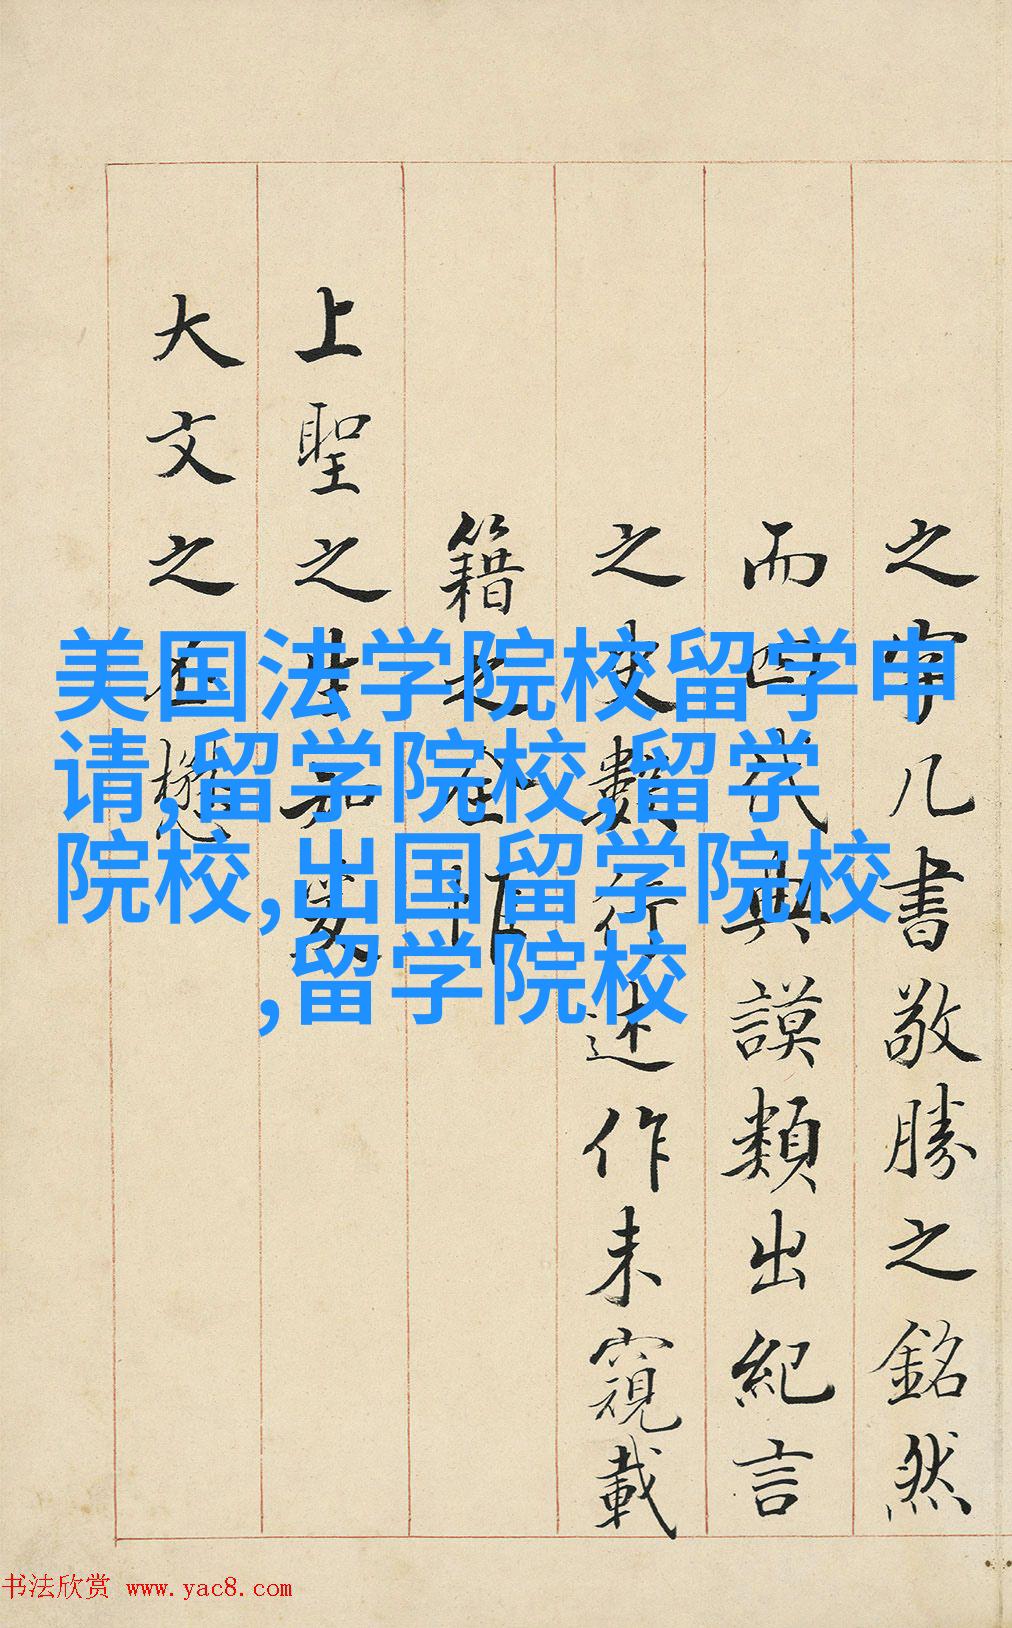 之几書敬勝之銘然
而四代典謨類出紀言
之史數行述作未窺載
籍之全
上聖之
大文之
美国法学院校留学申
请,留学院校,留学
院校,出国留学院校
,留学院校
书法欣赏 www.yac8.com